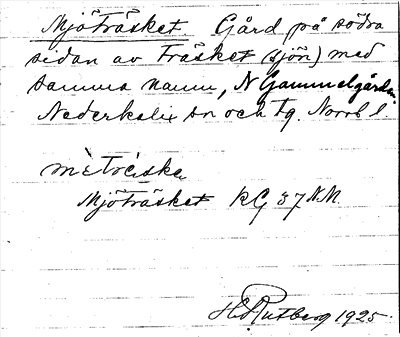 Mjöträsket. Gård på södra
sidan av Träsket (sjön) med
samma namn, N Gammelgården.
Nederkalix sn och tg. Norrb l.
Mjöträsket KG 37 N.M.
H Rutberg 1925